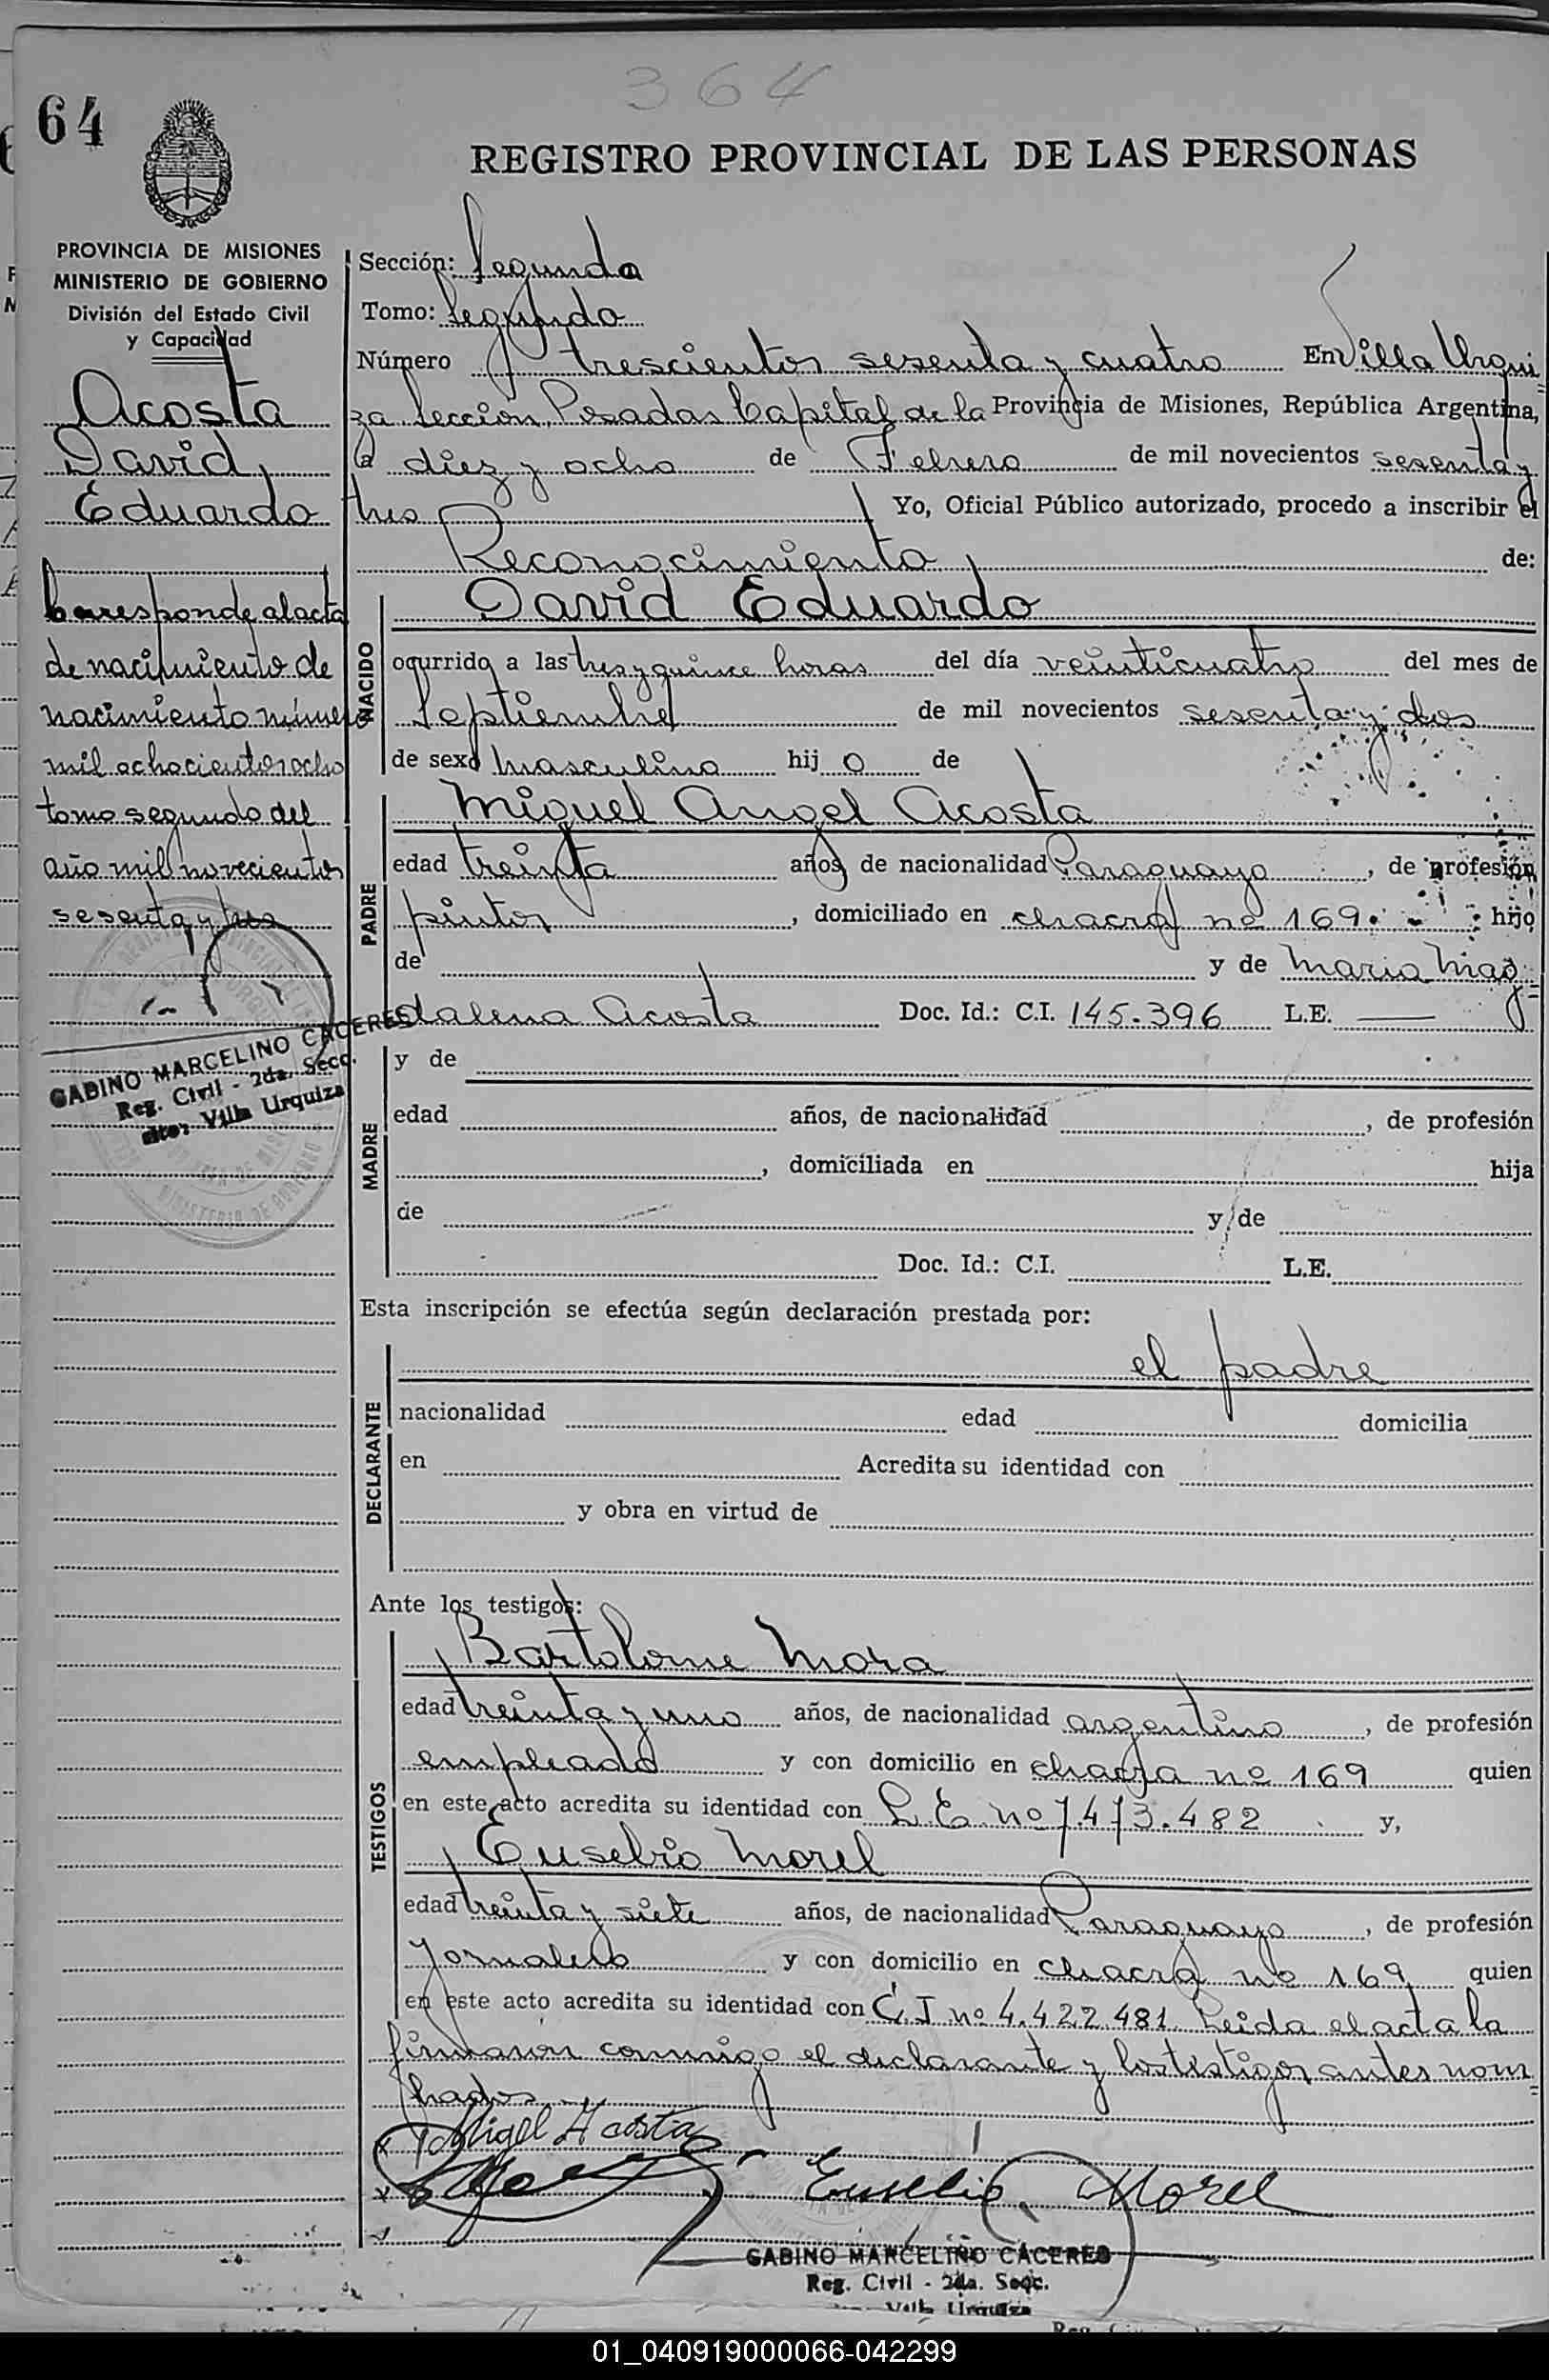 364
64
REGISTRO PROVINCIAL DE LAS PERSONAS
PROVINCIA DE MISIONES
MINISTERIO DE GOBIERNO
División del Estado Civil
y Capacidad
Acosta
David
Eduardo
Corresponde al acta
de nacimiento de
nacimiento número
mil ochocientos ocho
tomo segundo del
año mil novecientos
sesenta y tres
GABINO MARCELINO CACERES
Reg. Civil - 2da. Secc.
Villa Urquiza
Sección: Segunda
Tomo: Segundo
Número trescientos sesenta y cuatro En Villa Urqui
za Sección, Posadas Capital de la Provincia de Misiones, República Argentina,
a diez y ocho de Febrero de mil novecientos sesenta y
tres Yo, Oficial Público autorizado, procedo a inscribir el
Reconocimiento de:
NACIDO
David Eduardo
ocurrido a las tres y quince horas del día veinticuatro del mes de
Septiembre de mil novecientos sesenta y dos
de sexo masculino hijo de
PADRE
Miguel Angel Acosta
edad treinta años, de nacionalidad Paraguayo, de profesión
pintor, domiciliado en chacra nº 169. hijo
de y de Maria Mag-
dalena Acosta Doc. Id.: C.I. 145.396 L.E. —
MADRE
y de
edad años, de nacionalidad , de profesión
, domiciliada en hija
de y de
Doc. Id.: C.I. L.E.
Esta inscripción se efectúa según declaración prestada por:
DECLARANTE
el padre
nacionalidad edad domicilia
en Acredita su identidad con
y obra en virtud de
Ante los testigos:
TESTIGOS
Bartolome Mora
edad treinta y uno años, de nacionalidad argentino, de profesión
empleado y con domicilio en chacra nº 169 quien
en este acto acredita su identidad con L.E. nº 7.473.482 y,
Eusebio Morel
edad treinta y siete años, de nacionalidad Paraguayo, de profesión
Jornalero y con domicilio en chacra nº 169 quien
en este acto acredita su identidad con C.I nº 4.422.481. Leida el acta la
firmaron conmigo el declarante y los testigos antes nom-
brados
Migel Acosta
Eusebio Morel
GABINO MARCELINO CACERES
Reg. Civil - 2da. Secc.
Villa Urquiza
01_040919000066-042299